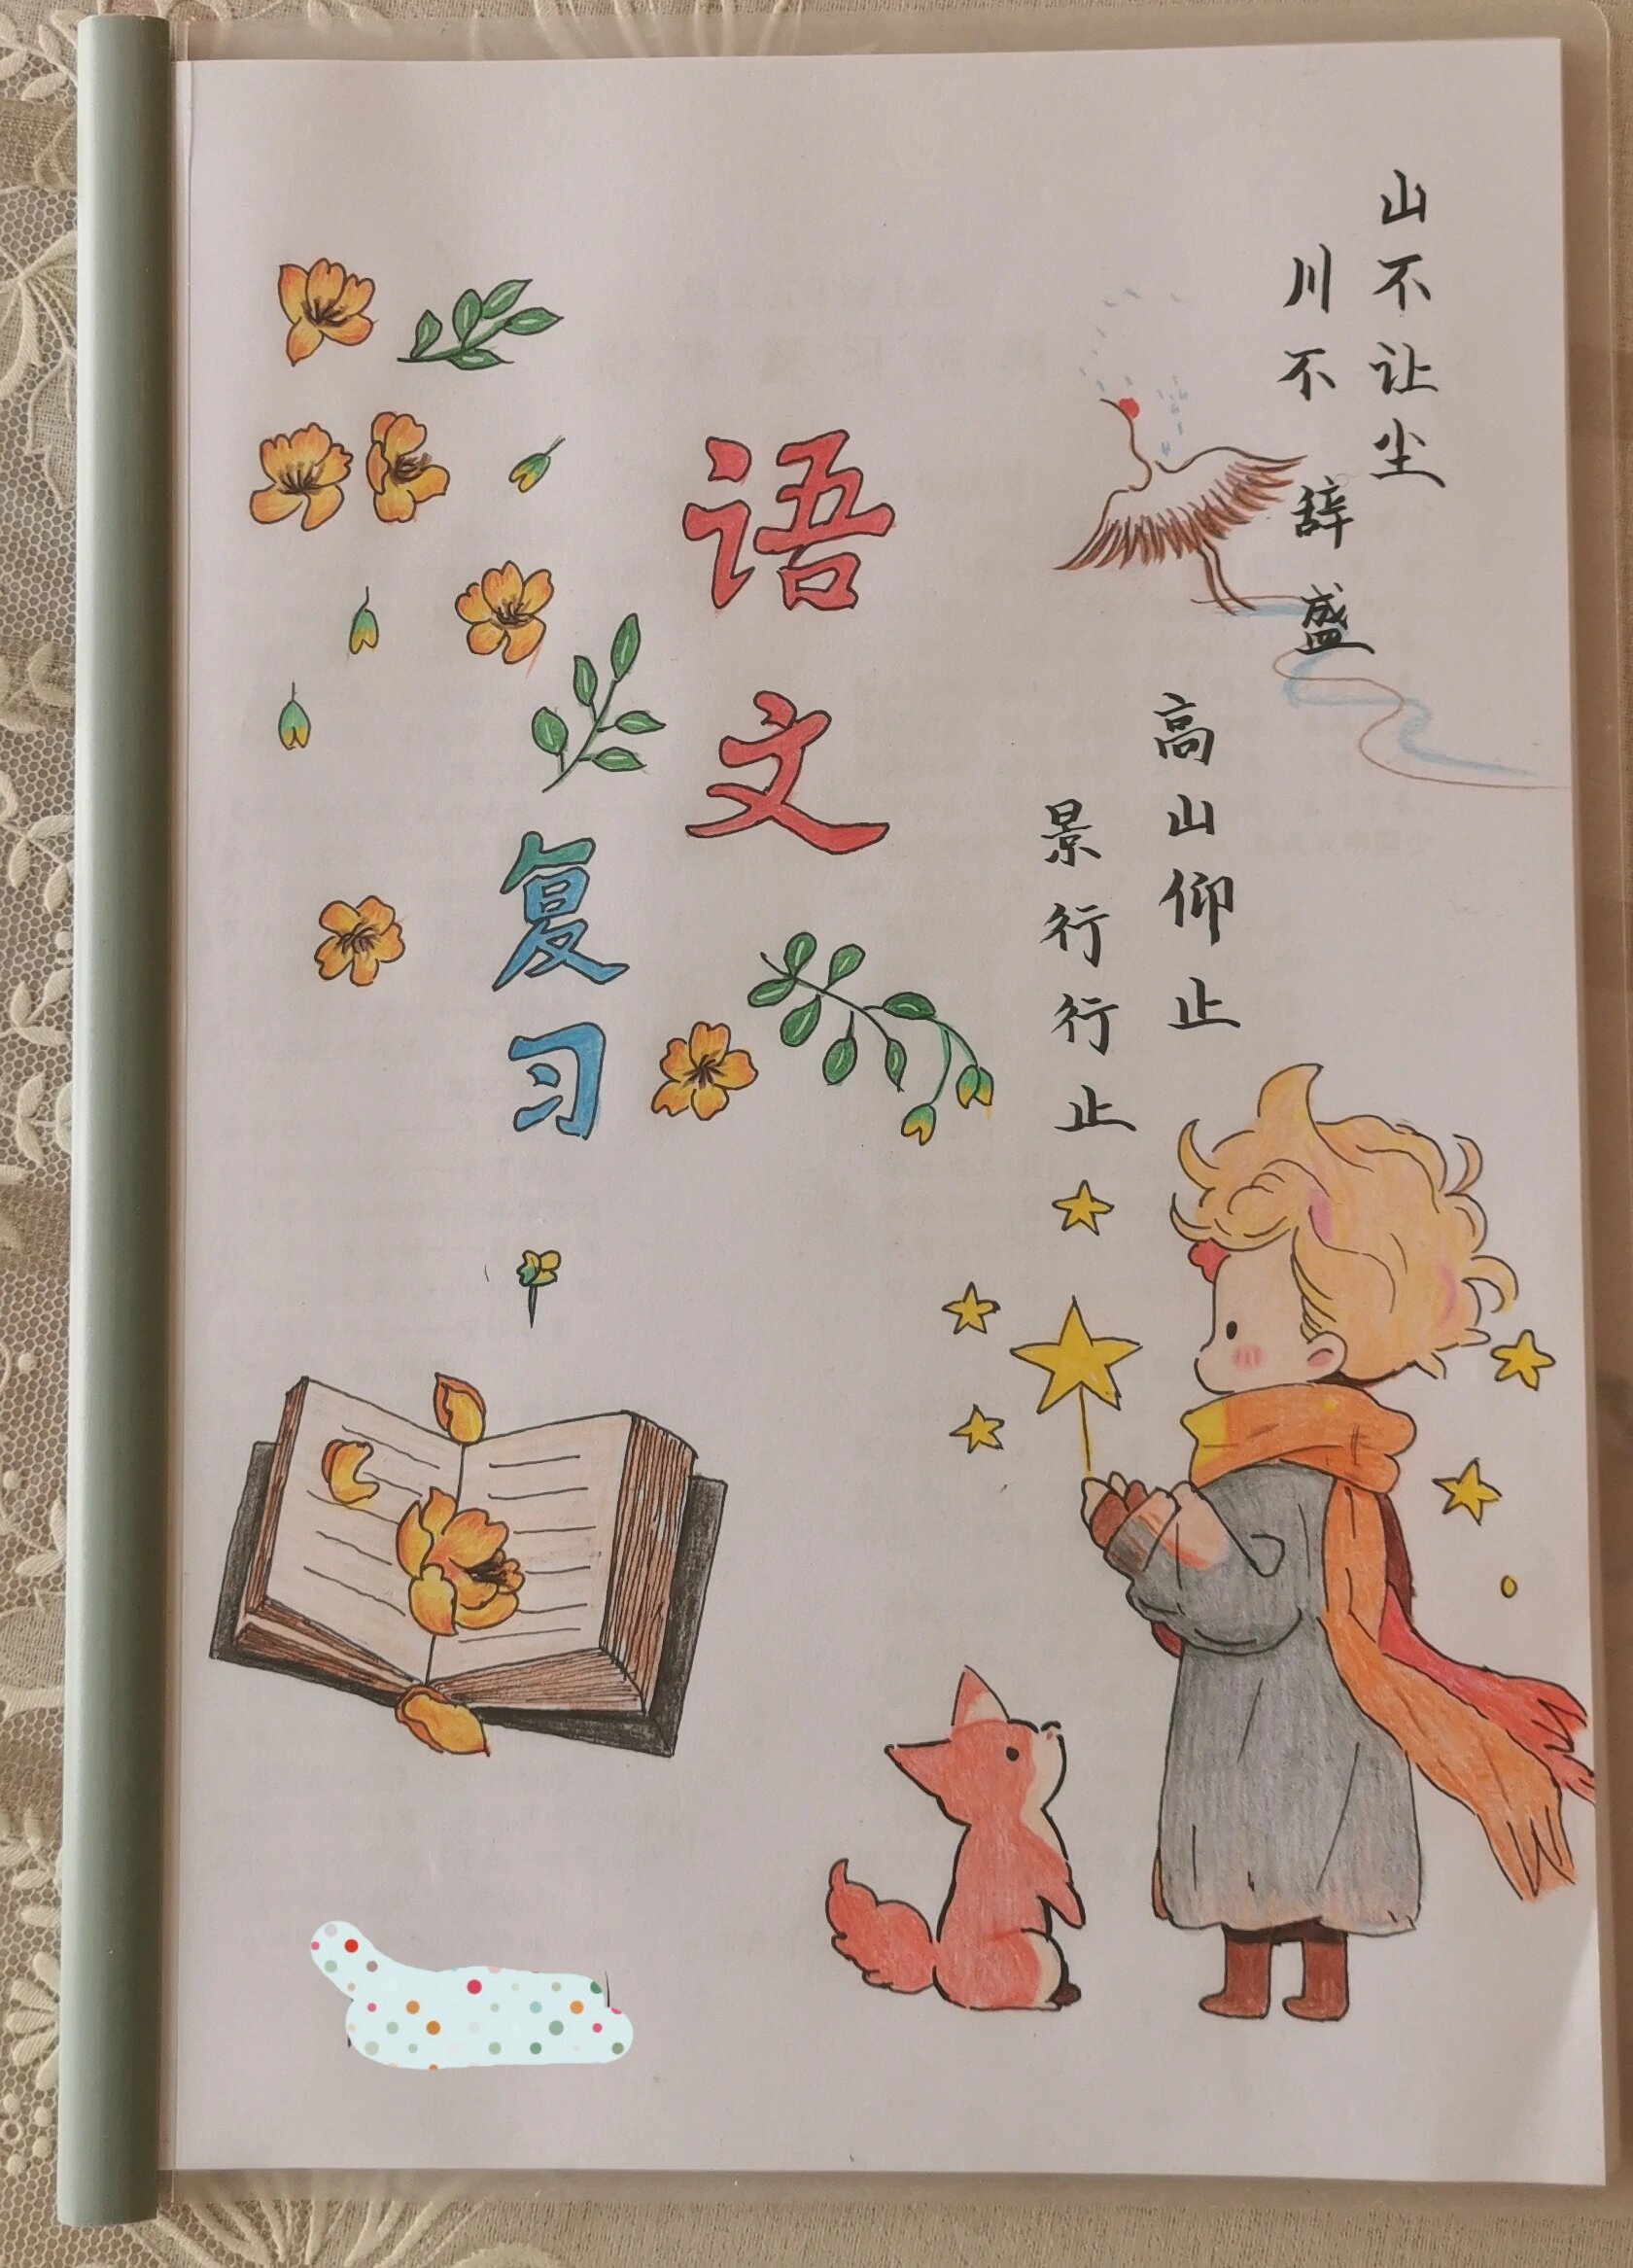 语文
复习
山不让尘
川不辞盛
高山仰止
景行行止